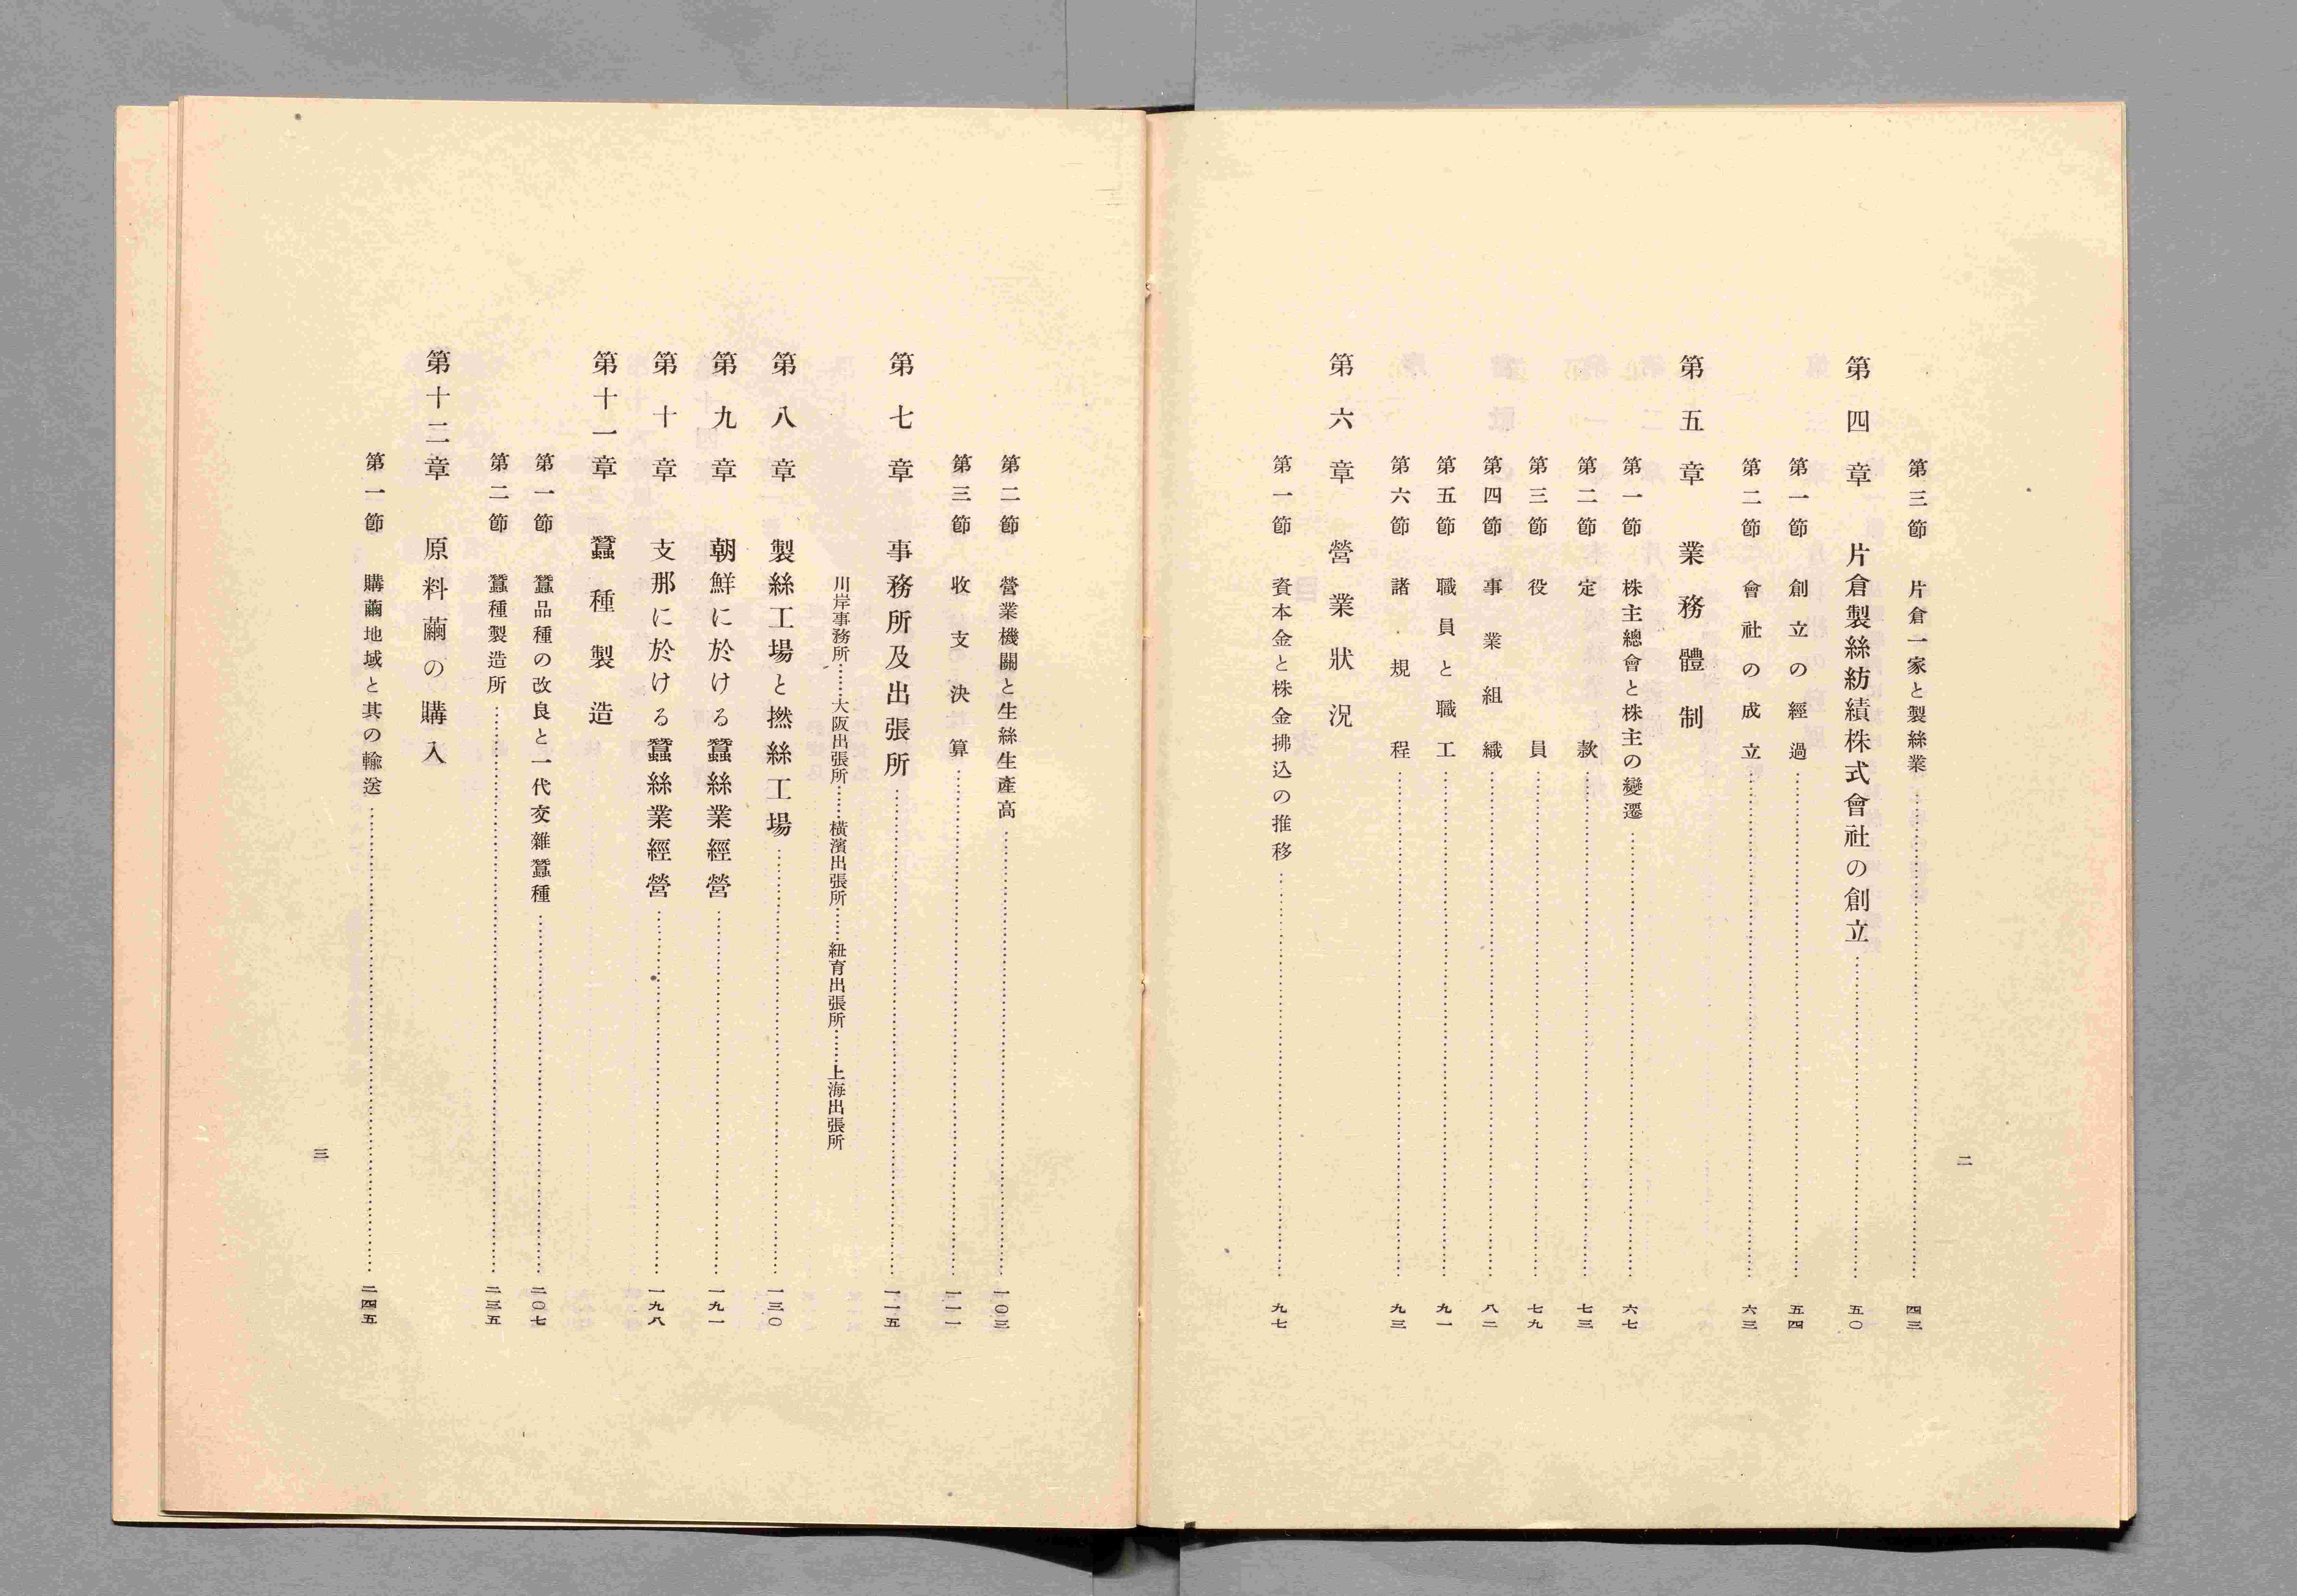 第三節 片倉一家と製絲業……四三
第四章 片倉製絲紡績株式會社の創立……五〇
第一節 創立の經過……五四
第二節 會社の成立……六三
第五章 業務體制
第一節 株主總會と株主の變遷……六七
第二節 定款……七三
第三節 役員……七九
第四節 事業組織……八二
第五節 職員と職工……九一
第六節 諸規程……九三
第六章 營業狀況
第一節 資本金と株金拂込の推移……九七
二
第二節 營業機關と生絲生產高……一〇三
第三節 收支決算……一一一
第七章 事務所及出張所……一一五
川岸事務所……大阪出張所……橫濱出張所……紐育出張所……上海出張所
第八章 製絲工場と撚絲工場……一三〇
第九章 朝鮮に於ける蠶絲業經營……一九一
第十章 支那に於ける蠶絲業經營……一九八
第十一章 蠶種製造
第一節 蠶品種の改良と一代交雜蠶種……二〇七
第二節 蠶種製造所……二三五
第十二章 原料繭の購入
第一節 購繭地域と其の輸送……二四五
三